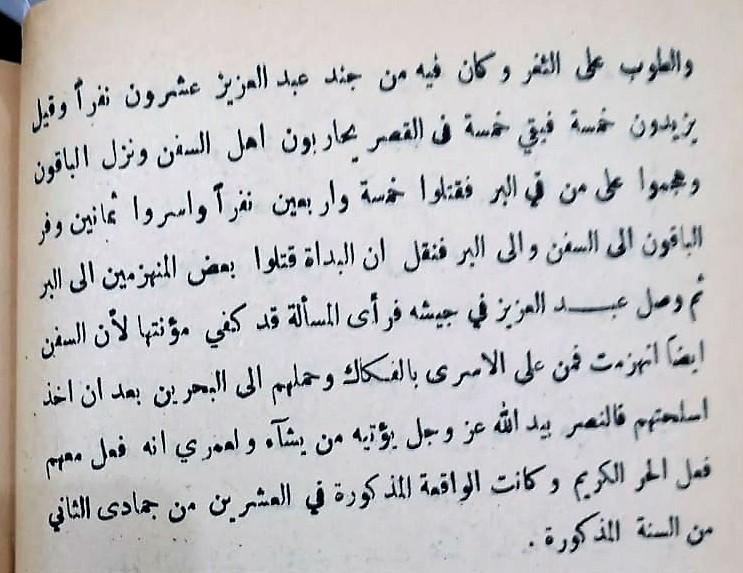 والطوب على الثغر وكان فيه من جند عبد العزيز عشرون نفراً وقيل
يزيدون خمسة فبقي خمسة فى القصر يحاربون اهل السفن ونزل الباقون
وهجموا على من في البر فقتلوا خمسة واربعين نفراً واسروا ثمانين وفر
الباقون الى السفن والى البر فنقل ان البداة قتلوا بعض المنهزمين الى البر
ثم وصل عبد العزيز في جيشه فرأى المسألة قد كفي مؤنتها لأن السفن
ايضاً انهزمت فمن على الاسرى بالفكاك وحملهم الى البحرين بعد ان اخذ
اسلحتهم فالنصر بيد الله عز وجل يؤتيه من يشآء ولعمري انه فعل معهم
فعل الحر الكريم وكانت الواقعة المذكورة في العشرين من جمادى الثاني
من السنة المذكورة .